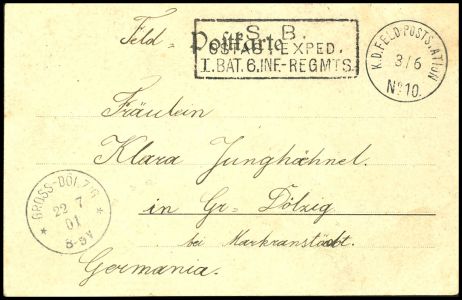 Feld = Postkarte
S. B.
OSTAS. EXPED.
I. BAT. 6. INF.-REGMTS.
K.D. FELD-POSTSTATION
3/6
No 10.
Fräulein
Klara Junghähnel.
in Gr= Dölzig
bei Markranstädt.
Germania.
GROSS-DÖLZIG
22 7
01
8-9V